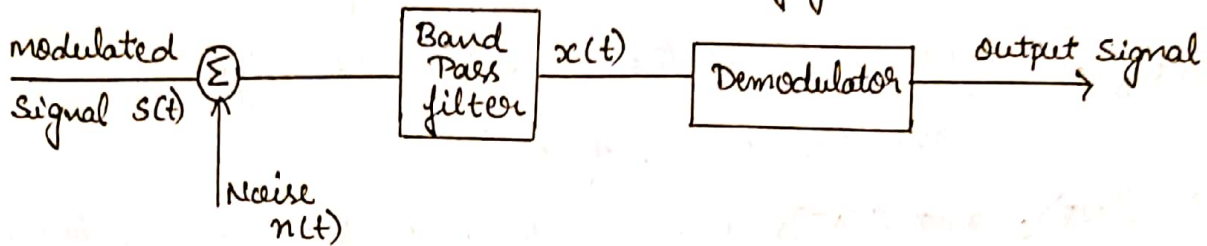 modulated
signal s(t)
Σ
Noise
n(t)
Band
Pass
filter
x(t)
Demodulator
output signal